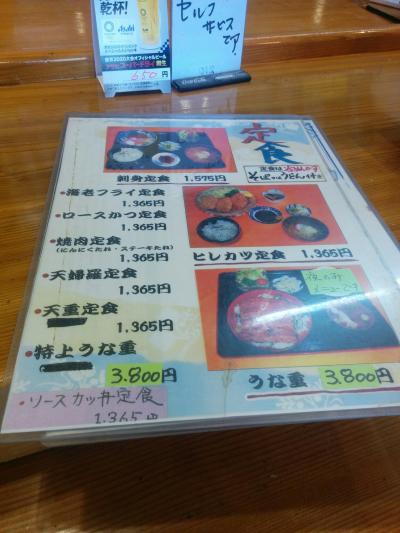 乾杯!
Asahi
東京2020大会オフィシャルビール
アサヒスーパードライ 樽生
650円
セルフ
サービス
です
定食
刺身定食 1,575円
海老フライ定食
1,365円
ロースかつ定食
1,365円
焼肉定食
(にんにくたれ・ステーキたれ)
1,365円
天婦羅定食
1,365円
天重定食
1,365円
特上うな重
3.800円
ソースカツ丼定食
1.365円
定食は
そばorうどん付き
ヒレカツ定食 1,365円
夜のみ
メニューです
うな重 3.800円